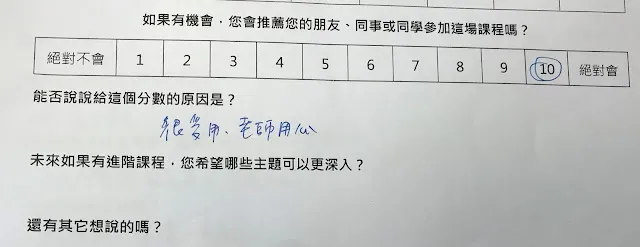 如果有機會，您會推薦您的朋友、同事或同學參加這場課程嗎？
絕對不會 1 2 3 4 5 6 7 8 9 10 絕對會
能否說說給這個分數的原因是？
很受用、老師用心
未來如果有進階課程，您希望哪些主題可以更深入？
還有其它想說的嗎？